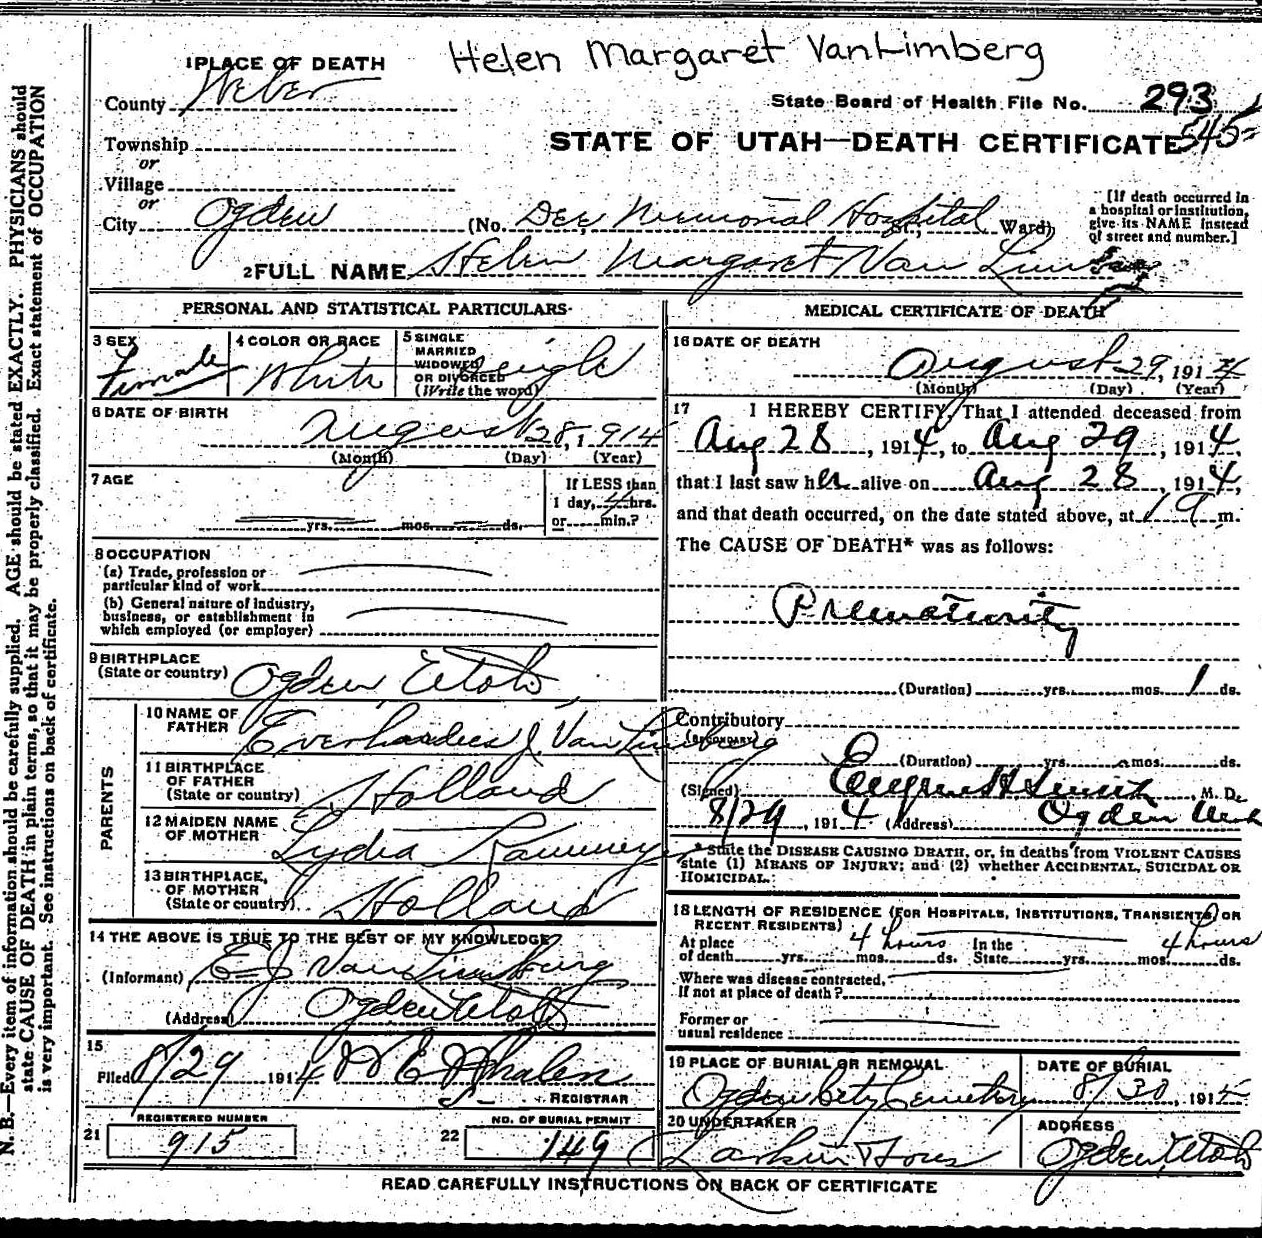 Helen Margaret VanLimberg
1 PLACE OF DEATH
County Weber
State Board of Health File No. 293
545
Township
or
Village
or
City Ogden
STATE OF UTAH—DEATH CERTIFICATE
(No. Dee Memorial Hospital St.; Ward)
[If death occurred in a hospital or institution, give its NAME instead of street and number.]
2 FULL NAME Helen Margaret Van
PERSONAL AND STATISTICAL PARTICULARS
3 SEX Female
4 COLOR OR RACE White
5 SINGLE MARRIED WIDOWED OR DIVORCED (Write the word) Single
6 DATE OF BIRTH August 28, 1914
(Month) (Day) (Year)
7 AGE
yrs. mos. ds.
If LESS than 1 day, 4 hrs. or min.?
8 OCCUPATION
(a) Trade, profession or particular kind of work
(b) General nature of industry, business, or establishment in which employed (or employer)
9 BIRTHPLACE (State or country) Ogden Utah
PARENTS
10 NAME OF FATHER J. Van Limberg
11 BIRTHPLACE OF FATHER (State or country) Holland
12 MAIDEN NAME OF MOTHER Lydia
13 BIRTHPLACE OF MOTHER (State or country) Holland
14 THE ABOVE IS TRUE TO THE BEST OF MY KNOWLEDGE
(Informant) E J Van Limberg
(Address) Ogden Utah
15
Filed 8/29 1914 W E Whalen
REGISTRAR
REGISTERED NUMBER
21 915
NO. OF BURIAL PERMIT
22 149
MEDICAL CERTIFICATE OF DEATH
16 DATE OF DEATH
August 29, 1914
(Month) (Day) (Year)
17 I HEREBY CERTIFY, That I attended deceased from
Aug 28, 1914, to Aug 29, 1914,
that I last saw her alive on Aug 28, 1914,
and that death occurred, on the date stated above, at 1 m.
The CAUSE OF DEATH* was as follows:
Prematurity
(Duration) yrs. mos. 1 ds.
Contributory
(SECONDARY)
(Duration) yrs. mos. ds.
(Signed) Eugene H Smith, M. D.
8/29, 1914 (Address) Ogden Utah
* State the DISEASE CAUSING DEATH, or, in deaths from VIOLENT CAUSES
state (1) MEANS OF INJURY; and (2) whether ACCIDENTAL, SUICIDAL OR
HOMICIDAL.
18 LENGTH OF RESIDENCE (FOR HOSPITALS, INSTITUTIONS, TRANSIENTS, OR RECENT RESIDENTS)
At place of death yrs. mos. 4 hours ds. In the State yrs. mos. 4 hours ds.
Where was disease contracted,
If not at place of death?
Former or
usual residence
19 PLACE OF BURIAL OR REMOVAL
Ogden City Cemetery
DATE OF BURIAL
8/30, 1914
20 UNDERTAKER
Larkin Sons
ADDRESS
Ogden, Utah
READ CAREFULLY INSTRUCTIONS ON BACK OF CERTIFICATE
N. B.—Every item of information should be carefully supplied. AGE should be stated EXACTLY. PHYSICIANS should
state CAUSE OF DEATH in plain terms, so that it may be properly classified. Exact statement of OCCUPATION
is very important. See instructions on back of certificate.